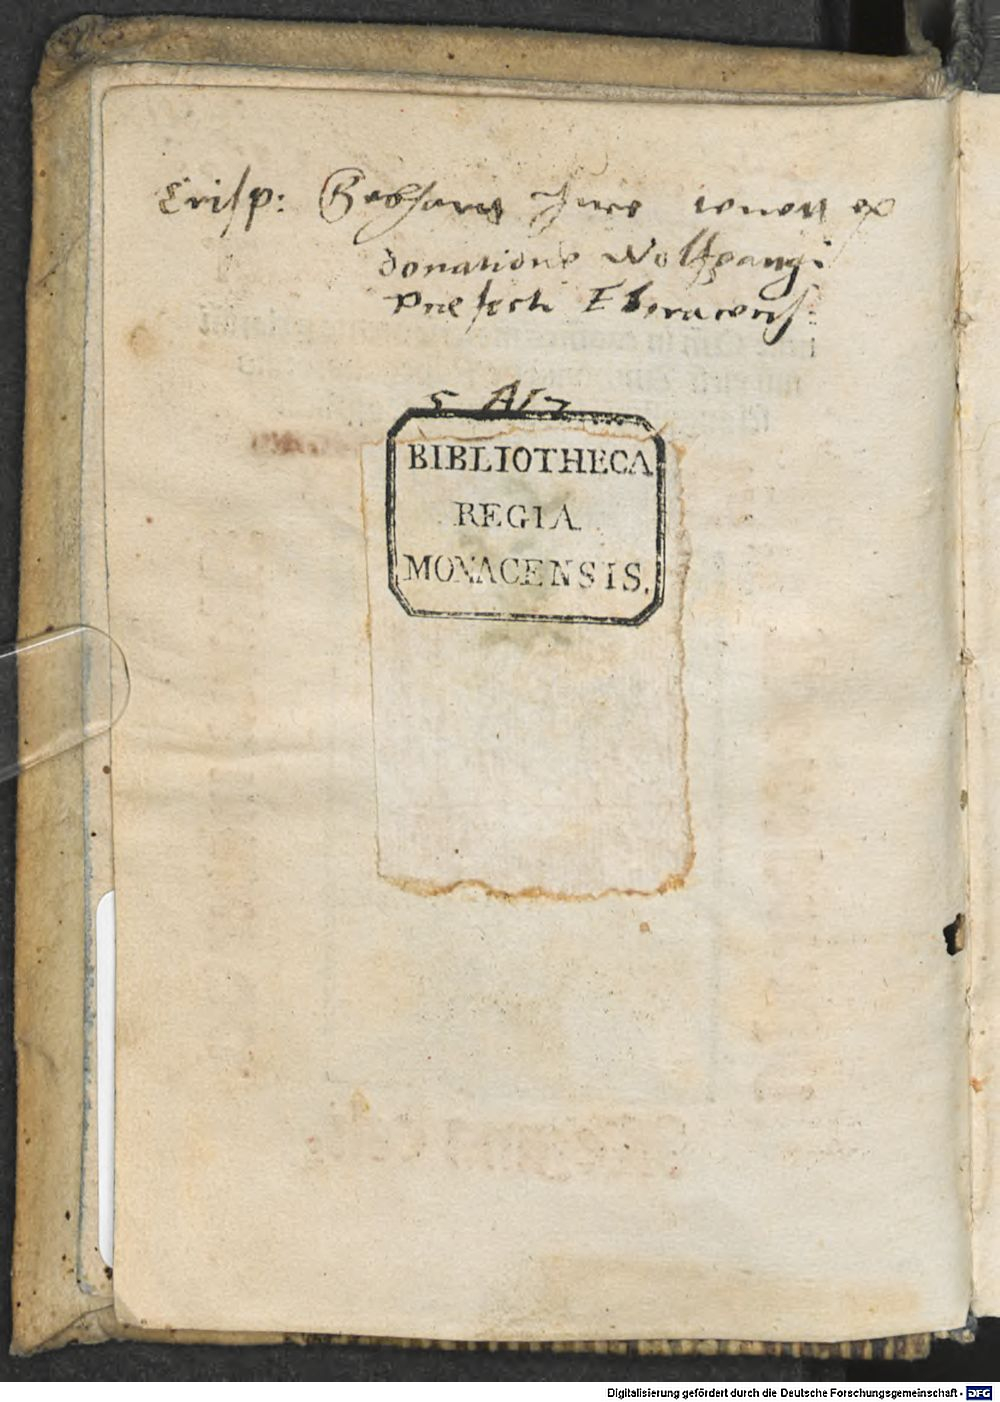 Crisp: Gebhard Jure tenett ex
donatione Wolfgangi
Prefecti Eberacens:
BIBLIOTHECA
REGIA
MONACENSIS.
Digitalisierung gefördert durch die Deutsche Forschungsgemeinschaft - DFG